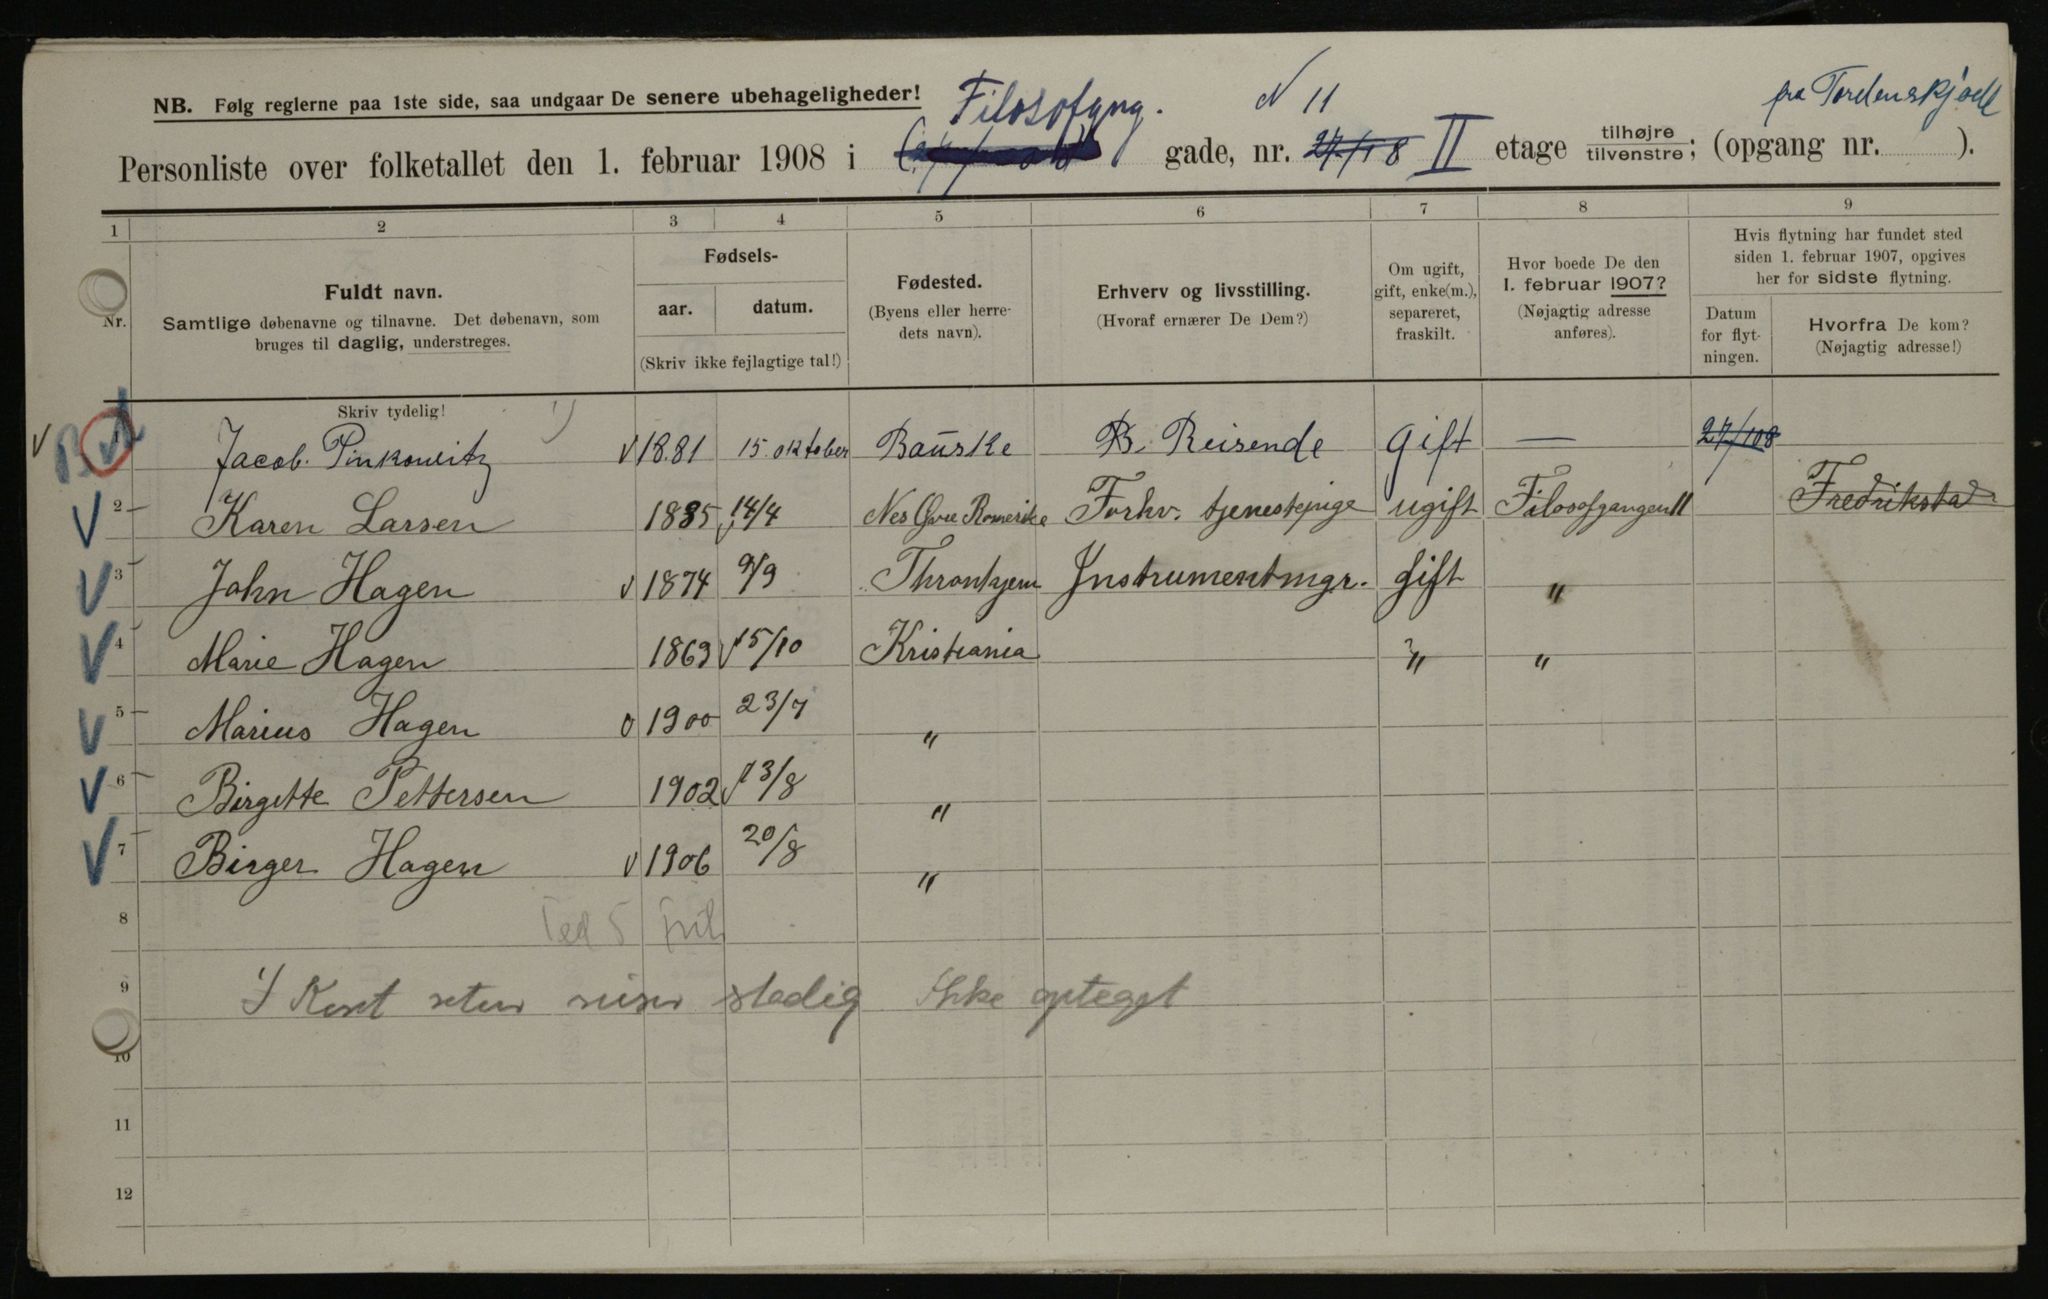 NB. Følg reglerne paa 1ste side, saa undgaar De senere ubehageligheder!
Filosofgng. N 11 fra Tordenskjold
Personliste over folketallet den 1. februar 1908 i gade, nr. 27/1 8 II etage tilhøjre tilvenstre; (opgang nr. ).
1 2 3 4 5 6 7 8 9
Nr.
Fuldt navn.
Samtlige døbenavne og tilnavne. Det døbenavn, som
bruges til daglig, understreges.
Fødsels-
aar. datum.
(Skriv ikke fejlagtige tal!)
Fødested.
(Byens eller herre-
dets navn).
Erhverv og livsstilling.
(Hvoraf ernærer De Dem?)
Om ugift,
gift, enke(m.),
separeret,
fraskilt.
Hvor boede De den
1. februar 1907?
(Nøjagtig adresse
anføres).
Hvis flytning har fundet sted
siden 1. februar 1907, opgives
her for sidste flytning.
Datum
for flyt-
ningen.
Hvorfra De kom?
(Nøjagtig adresse!)
Skriv tydelig! 1)
1 Jacob. Pinkowitz v 1881 15. oktober Bauske B. Reisende Gift — 27/1 08
2 Karen Larsen 1885 14/4 Nes Øvre Romerike Forhv. tjenestepige ugift Filosofgangen 11 Fredrikstad
3 John Hagen v 1874 9/9 Thronhjem Instrumentmgr. Gift "
4 Marie Hagen 1863 15/10 Kristiania " "
5 Marius Hagen 0 1900 23/7 "
6 Birgitte Pettersen 1902 13/8 "
7 Birger Hagen v 1906 20/8 "
8
9 1) Kont reiser stadig Ikke opteget
10
11
12